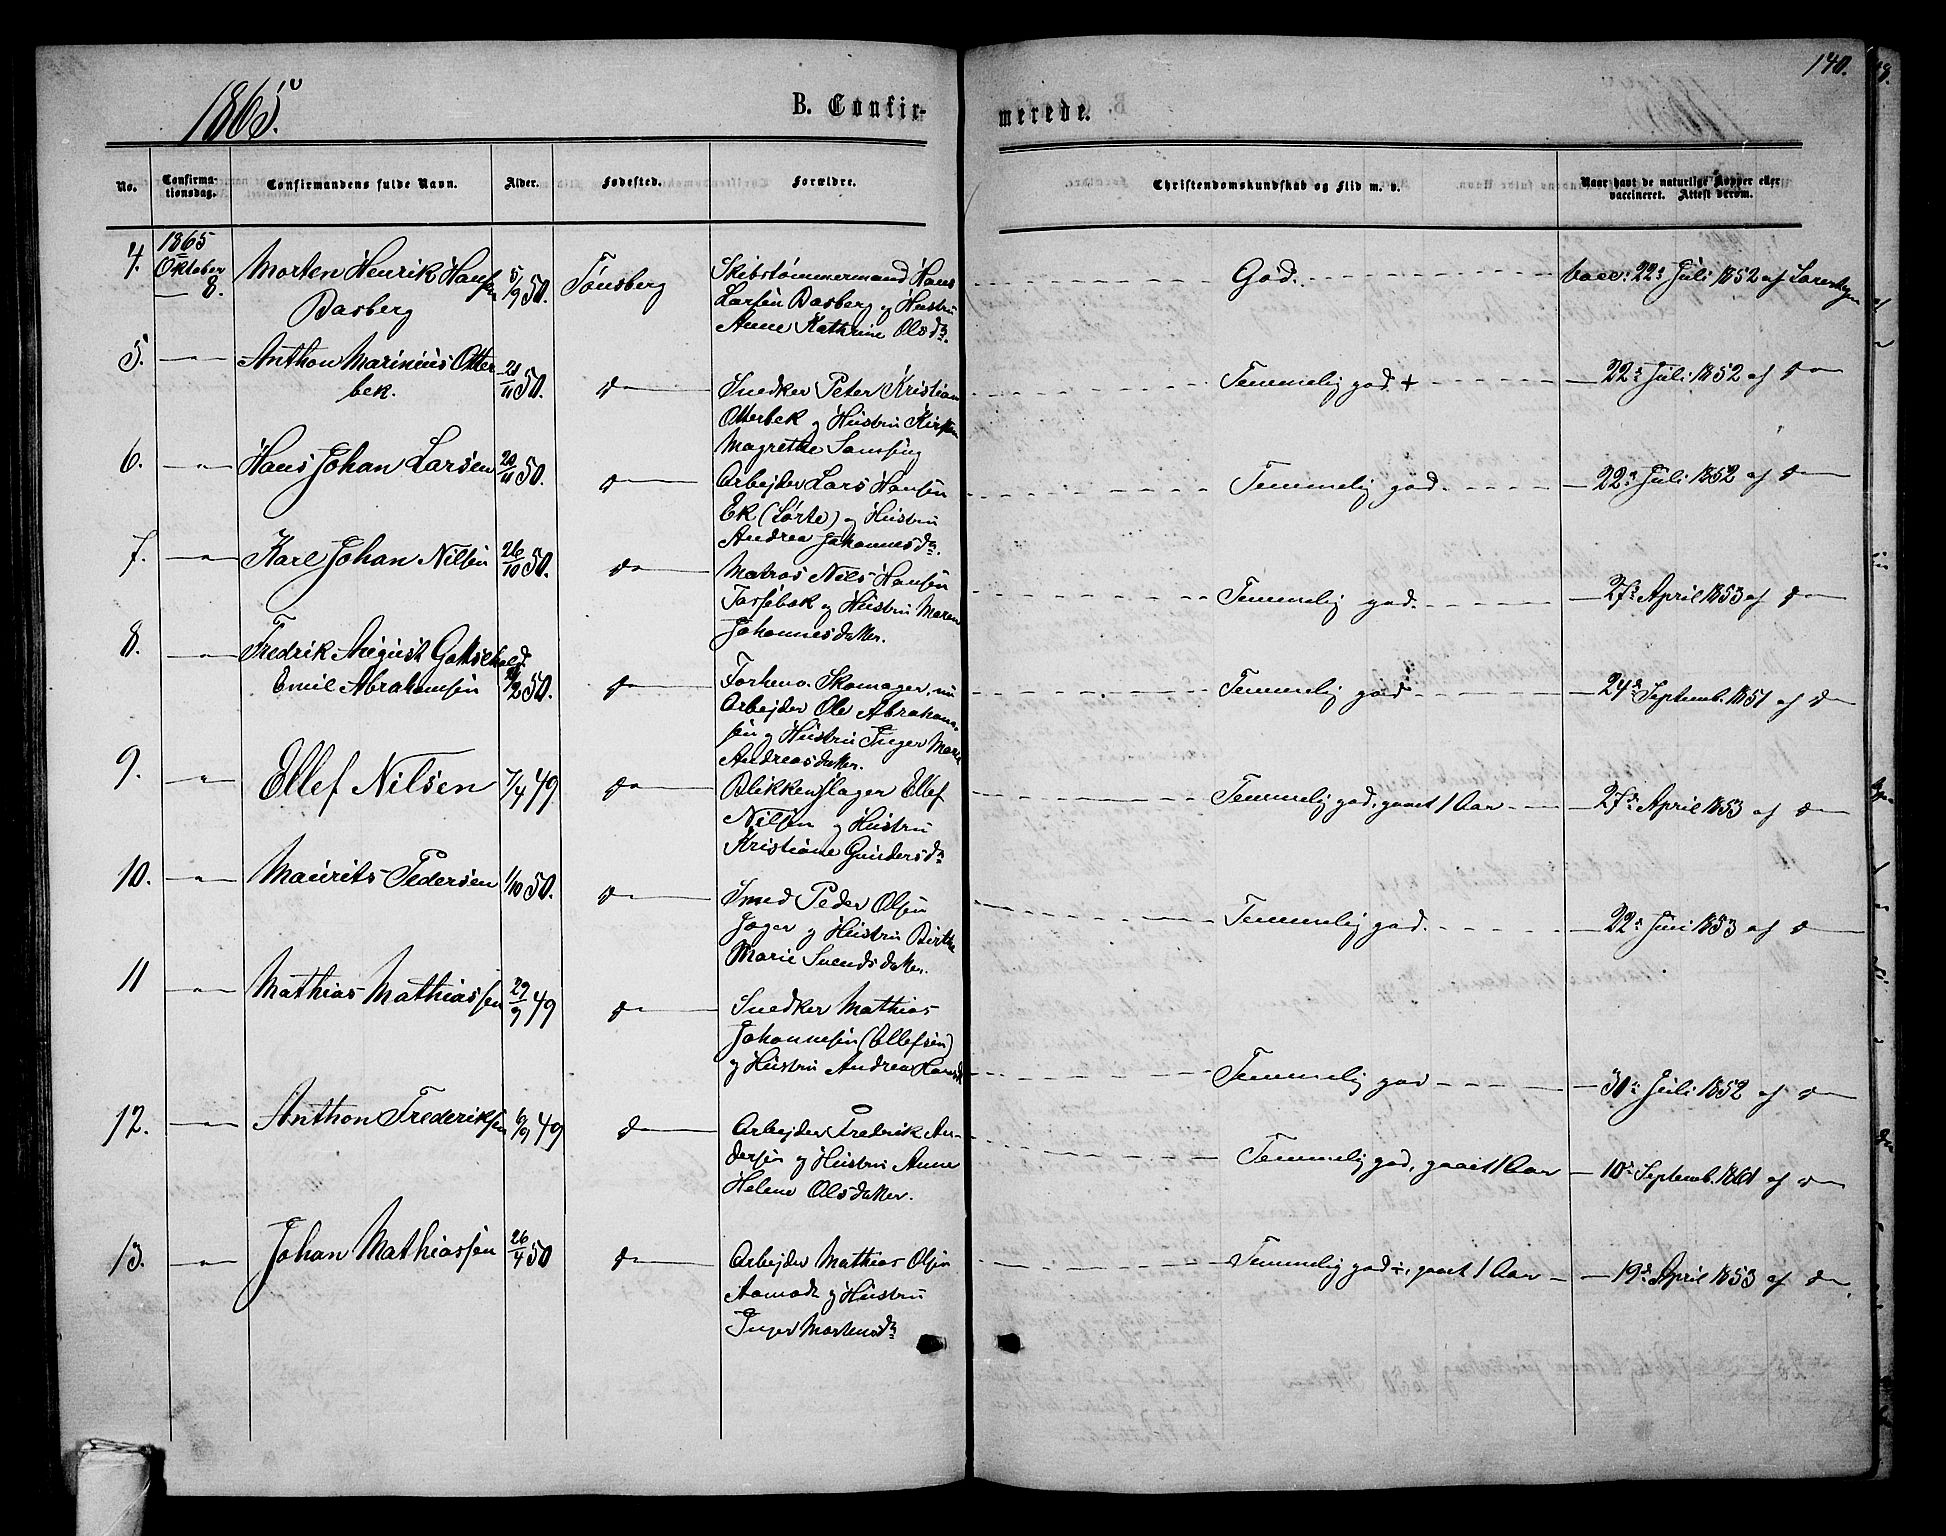 1865.
B. Confir-
merede.
140.
No.
Confirma-
tionsdag.
Confirmandens fulde Navn.
Alder.
Fødested.
Forældre.
Christendomskundskab og Flid m. v.
Naar havt de naturlige Kopper eller
vaccineret. Attest derom.
4. 1865 Oktober 8. Morten Henrik Hansen 5/9 50. Tønsberg Skibstømmermand Hans God. vacc: 22de Juli 1852 af
Basberg Larsen Basberg og Hustru
Anne Kathrine Olsdr.
5. — " — Anthon Marinius Otter 21/11 50. do Snedker Peter Kristian Temmelig god + 22de Juli 1852 af do
bek. Otterbek og Hustru Kirsten
Magrethe
6. — " — Hans Johan Larsen 20/11 50. do Arbejder Lars Hansen Temmelig god. 22de Juli 1852 af do
Ek (Lørte) og Hustru
Andrea Johannesdr.
7. — " — Karl Johan Nilsen 26/10 50. do Matros Nils Hansen Temmelig god. 27de April 1853 af do
og Hustru Maren
Johannesdatter.
8. — " — Fredrik August Gottschald 50. do Forhenv. Skomager, nu Temmelig god 24de Septemb. 1851 af do
Emil Abrahamsen Arbejder Ole Abraham-
sen og Hustru Inger Marie
Andreasdatter.
9. — " — Ellef Nilsen 7/4 49. do Blikkenslager Ellef Temmelig god, gaaet 1 Aar 27de April 1853 af do
Nilsen og Hustru
Kristiane Gundersdr
10. — " — Maurits Pedersen 1/10 50. do Smed Peder Olsen Temmelig god. 22de Juni 1853 af do
Jager og Hustru Birthe
Marie Svendsdatter.
11 — " — Mathias Mathiassen 29/9 49 do Snedker Mathias Temmelig god 31te Juli 1852 af do
Johannesen (Ellefsen)
og Hustru Andrea Hansd
12. — " — Anthon Frederiksen 6/9 49 do Arbejder Fredrik An- Temmelig god, gaaet 1 Aar 10de Septemb. 1861 af do
dersen og Hustru Anne
Helene Olsdatter.
13. — " — Johan Mathiassen 26/4 50 do Arbejder Mathias Olsen Temmelig god ÷, gaaet 1 Aar 19de April 1853 af do
Aamodt og Hustru
Inger Mortensdr